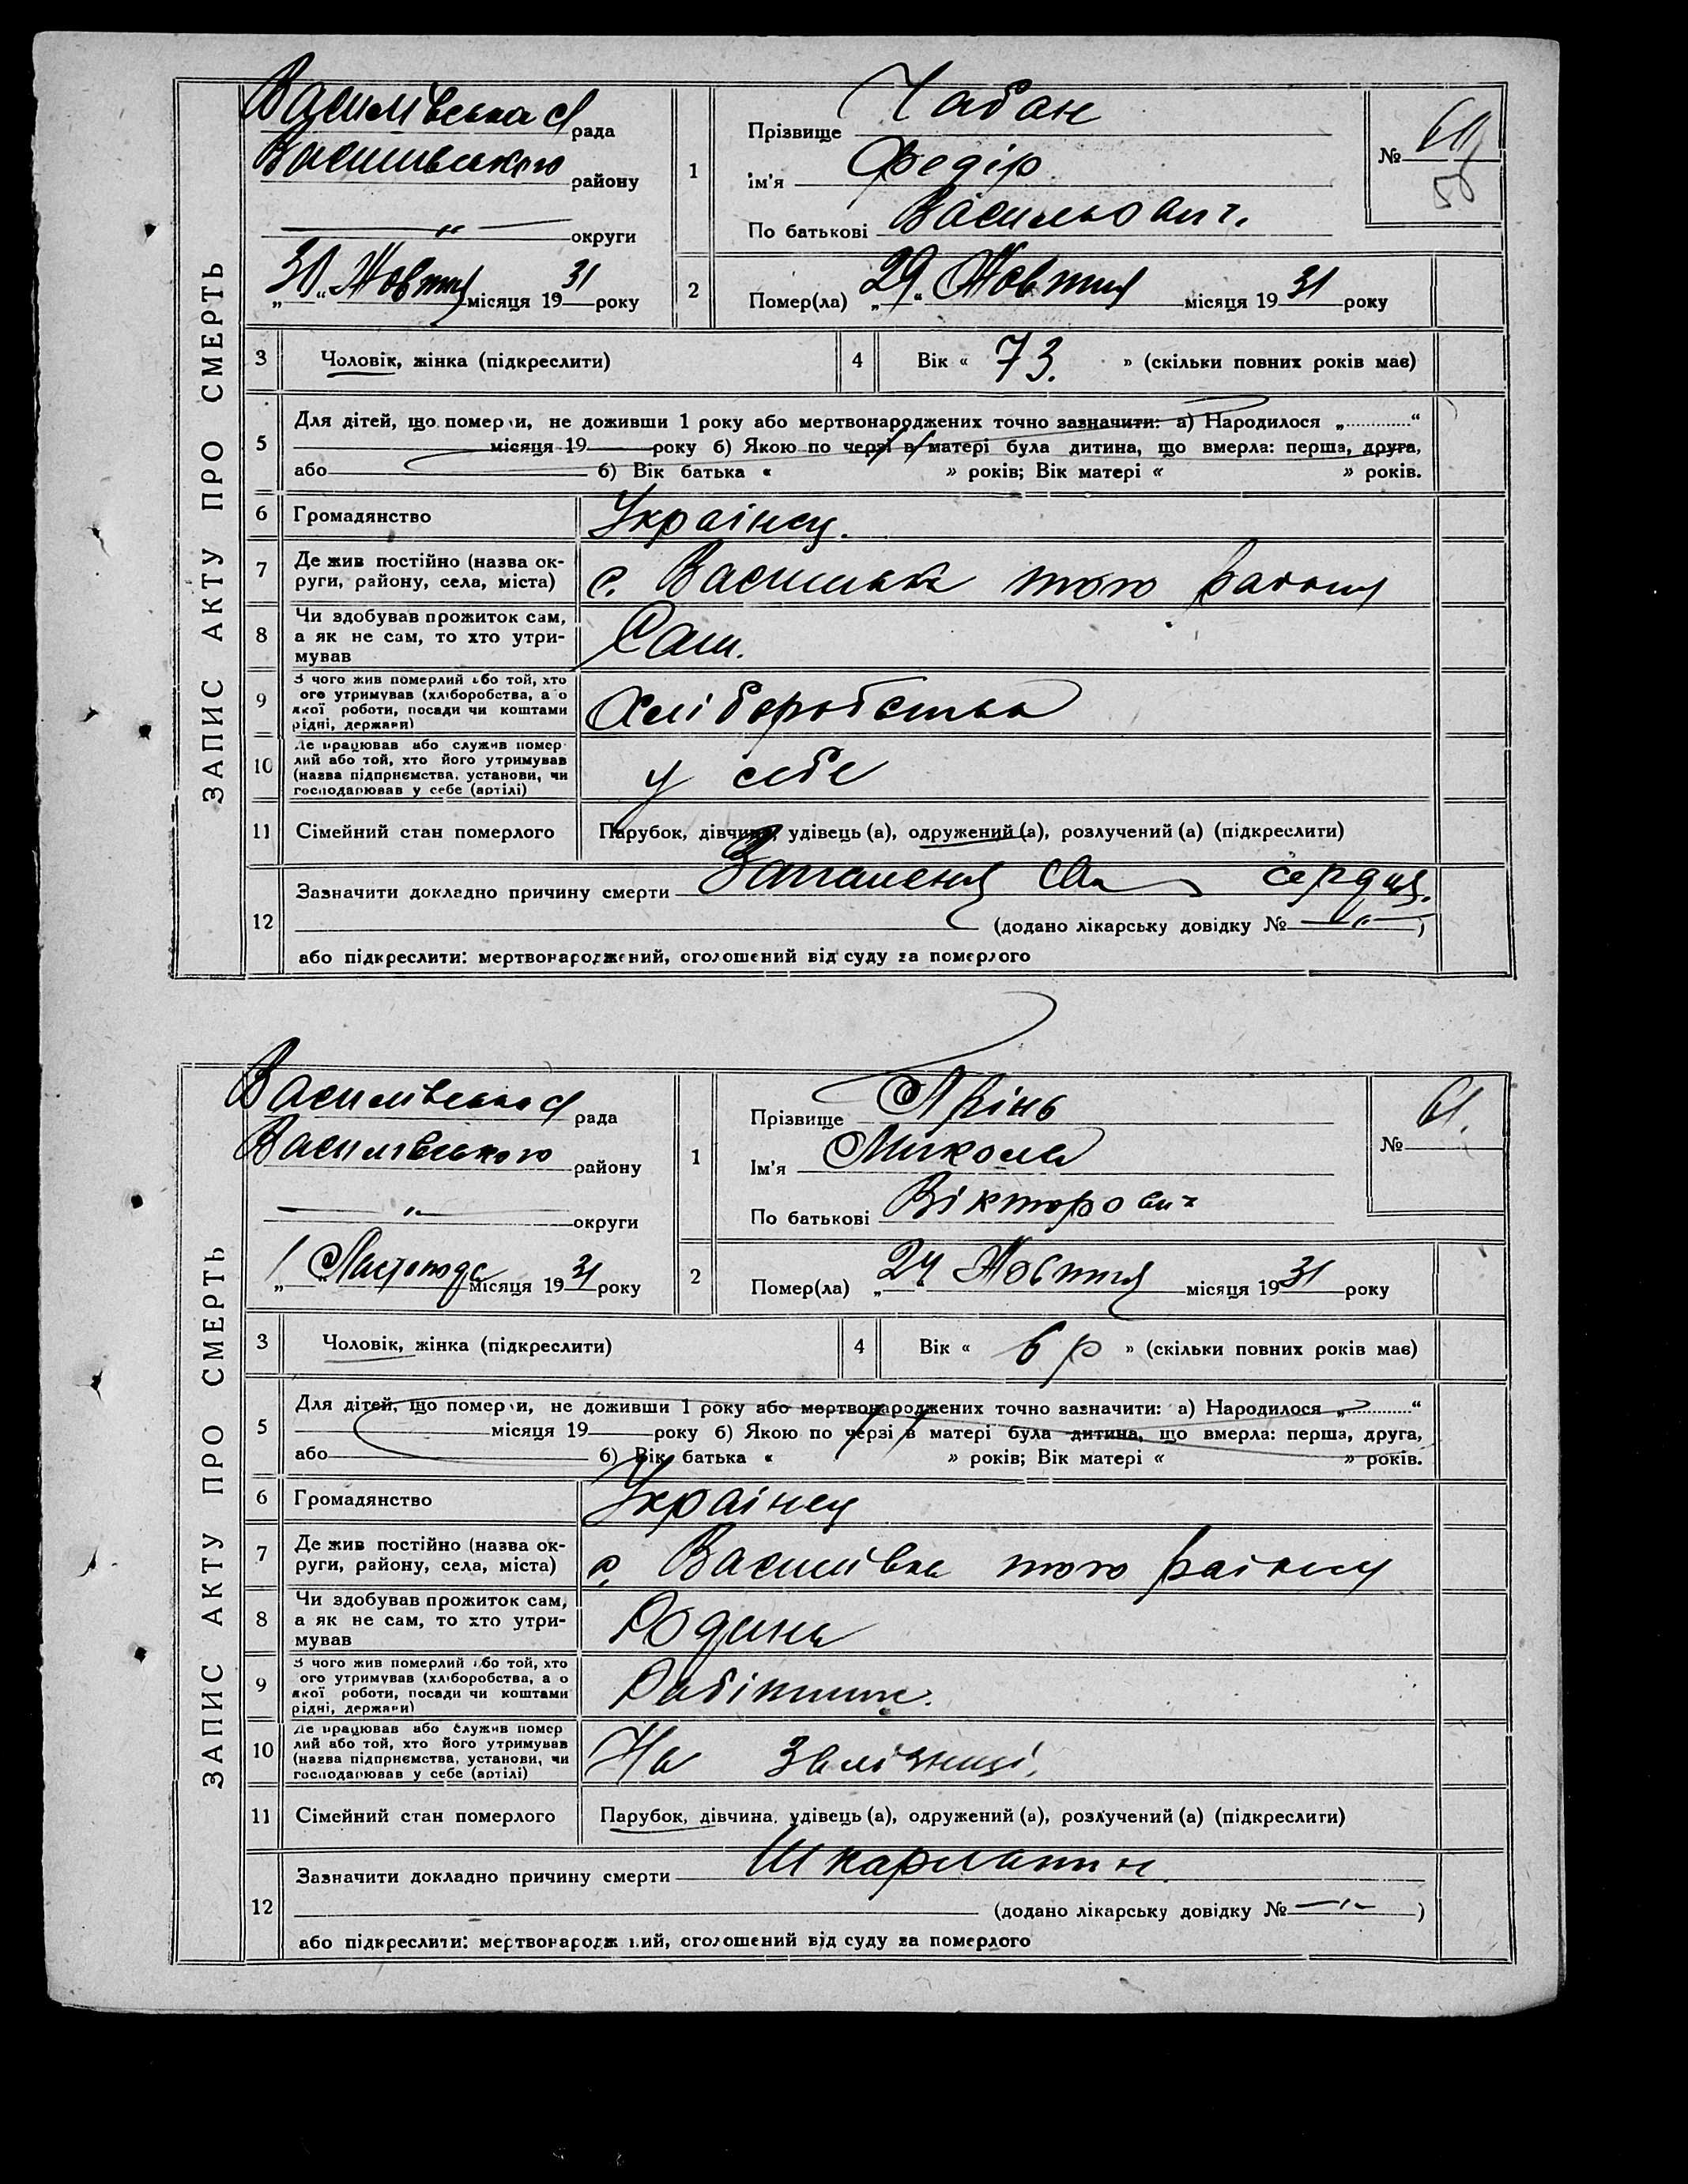 ЗАПИС АКТУ ПРО СМЕРТЬ
Василівська рада
Василівського району
— „ — округи
„30“ Жовтня місяця 1931 року
1
Прізвище Чабан
ім'я Федір
По батькові Васильович.
№ 60
2
Помер(ла) „29“ Жовтня місяця 1931 року
3 Чоловік, жінка (підкреслити)
4 Вік « 73. » (скільки повних років має)
5 Для дітей, що померли, не доживши 1 року або мертвонароджених точно зазначити: а) Народилося „............“
місяця 19 року б) Якою по черзі в матері була дитина, що вмерла: перша, друга,
або б) Вік батька « » років; Вік матері « » років.
6 Громадянство Украінец.
7 Де жив постійно (назва ок-
руги, району, села, міста) с. Василівка того району
8 Чи здобував прожиток сам,
а як не сам, то хто утри-
мував Сам.
9 З чого жив померлий або той, хто
ого утримував (хліборобства, а о
якої роботи, посади чи коштами
рідні, держави) Хліборобства
10 Де працював або служив помер
лий або той, хто його утримував
(назва підприємства, установи, чи
господарював у себе (артілі) у себе
11 Сімейний стан померлого Парубок, дівчина, удівець (а), одружений (а), розлучений (а) (підкреслити)
12 Зазначити докладно причину смерти Запалення сердця.
(додано лікарську довідку № — „ — )
або підкреслити: мертвонароджений, оголошений від суду за померлого
ЗАПИС АКТУ ПРО СМЕРТЬ
Василівська рада
Василівського району
— „ — округи
„1“ Листопада місяця 1931 року
1
Прізвище
Ім'я Микола
По батькові Вікторович
№ 61.
2
Помер(ла) „24“ Жовтня місяця 1931 року
3 Чоловік, жінка (підкреслити)
4 Вік « 6 р » (скільки повних років має)
5 Для дітей, що померли, не доживши 1 року або мертвонароджених точно зазначити: а) Народилося „............“
місяця 19 року б) Якою по черзі в матері була дитина, що вмерла: перша, друга,
або б) Вік батька « » років; Вік матері « » років.
6 Громадянство Украінец
7 Де жив постійно (назва ок-
руги, району, села, міста) с. Василівка того району
8 Чи здобував прожиток сам,
а як не сам, то хто утри-
мував Родина
9 З чого жив померлий або той, хто
ого утримував (хліборобства, а о
якої роботи, посади чи коштами
рідні, держави)
10 Де працював або служив помер
лий або той, хто його утримував
(назва підприємства, установи, чи
господарював у себе (артілі) На Залізниці,
11 Сімейний стан померлого Парубок, дівчина, удівець (а), одружений (а), розлучений (а) (підкреслити)
12 Зазначити докладно причину смерти Шкарлатин
(додано лікарську довідку № — „ — )
або підкреслити: мертвонароджений, оголошений від суду за померлого